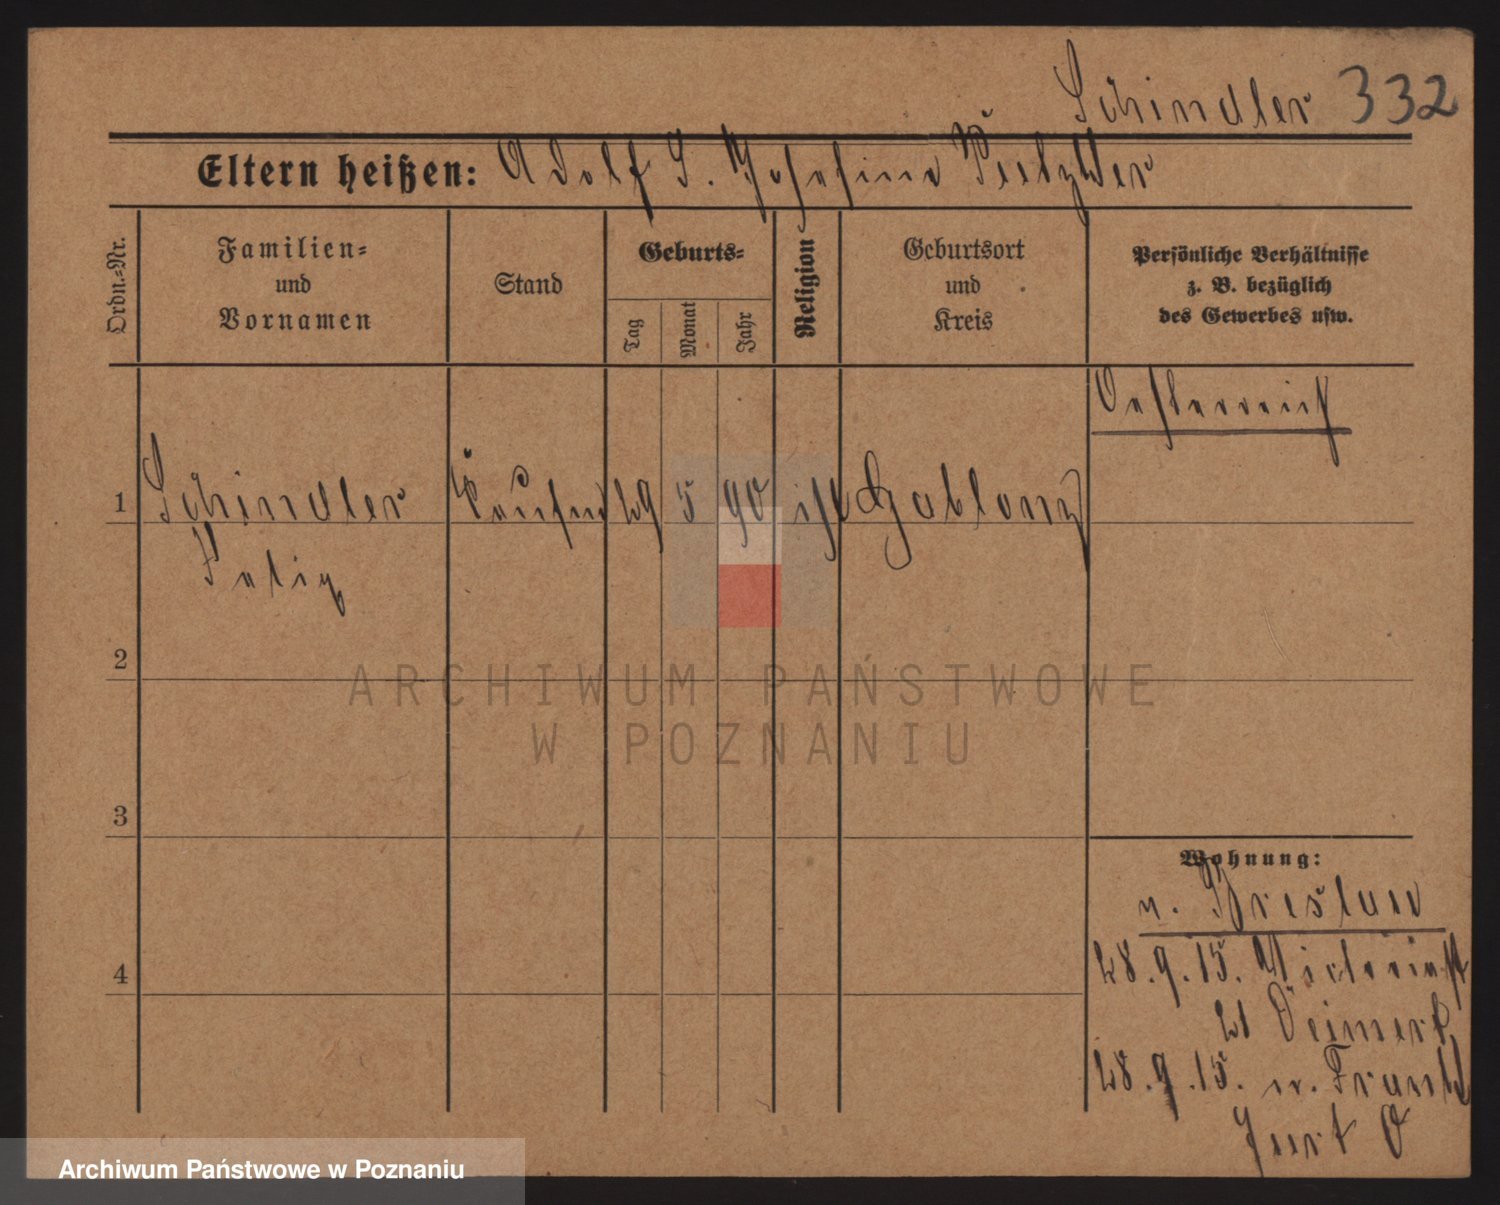 Schindler 332
Eltern heißen: Adolf S. Josefine
Ordn.-Nr.
Familien-
und
Vornamen
Stand
Geburts-
Tag
Monat
Jahr
Religion
Geburtsort
und
Kreis
Persönliche Verhältnisse
z. B. bezüglich
des Gewerbes usw.
Oesterreich
1 Schindler Kaufm 29 5 90 isr Gablonz
Felix
2
ARCHIWUM PAŃSTWOWE
W POZNANIU
3
Wohnung:
n. Breslau
28.9.15. Victoriastr
21
4
28.9.15. n. Frankf
furt O
Archiwum Państwowe w Poznaniu